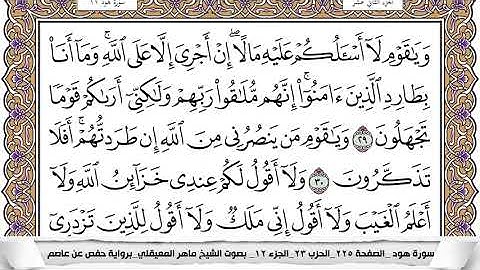 الجزء الثاني عشر
سورة هود ١١
وَيَٰقَوْمِ لَآ أَسْـَٔلُكُمْ عَلَيْهِ مَالًا ۖ إِنْ أَجْرِىَ إِلَّا عَلَى ٱللَّهِ ۚ وَمَآ أَنَا۠
بِطَارِدِ ٱلَّذِينَ ءَامَنُوٓا۟ ۚ إِنَّهُم مُّلَٰقُوا۟ رَبِّهِمْ وَلَٰكِنِّىٓ أَرَىٰكُمْ قَوْمًا
تَجْهَلُونَ ٢٩ وَيَٰقَوْمِ مَن يَنصُرُنِى مِنَ ٱللَّهِ إِن طَرَدتُّهُمْ ۚ أَفَلَا
تَذَكَّرُونَ ٣٠ وَلَآ أَقُولُ لَكُمْ عِندِى خَزَآئِنُ ٱللَّهِ وَلَآ
أَعْلَمُ ٱلْغَيْبَ وَلَآ أَقُولُ إِنِّى مَلَكٌ وَلَآ أَقُولُ لِلَّذِينَ تَزْدَرِىٓ
سورة هود_الصفحة ٢٢٥_الحزب ٢٣_الجزء ١٢_ بصوت الشيخ ماهر المعيقلي_برواية حفص عن عاصم